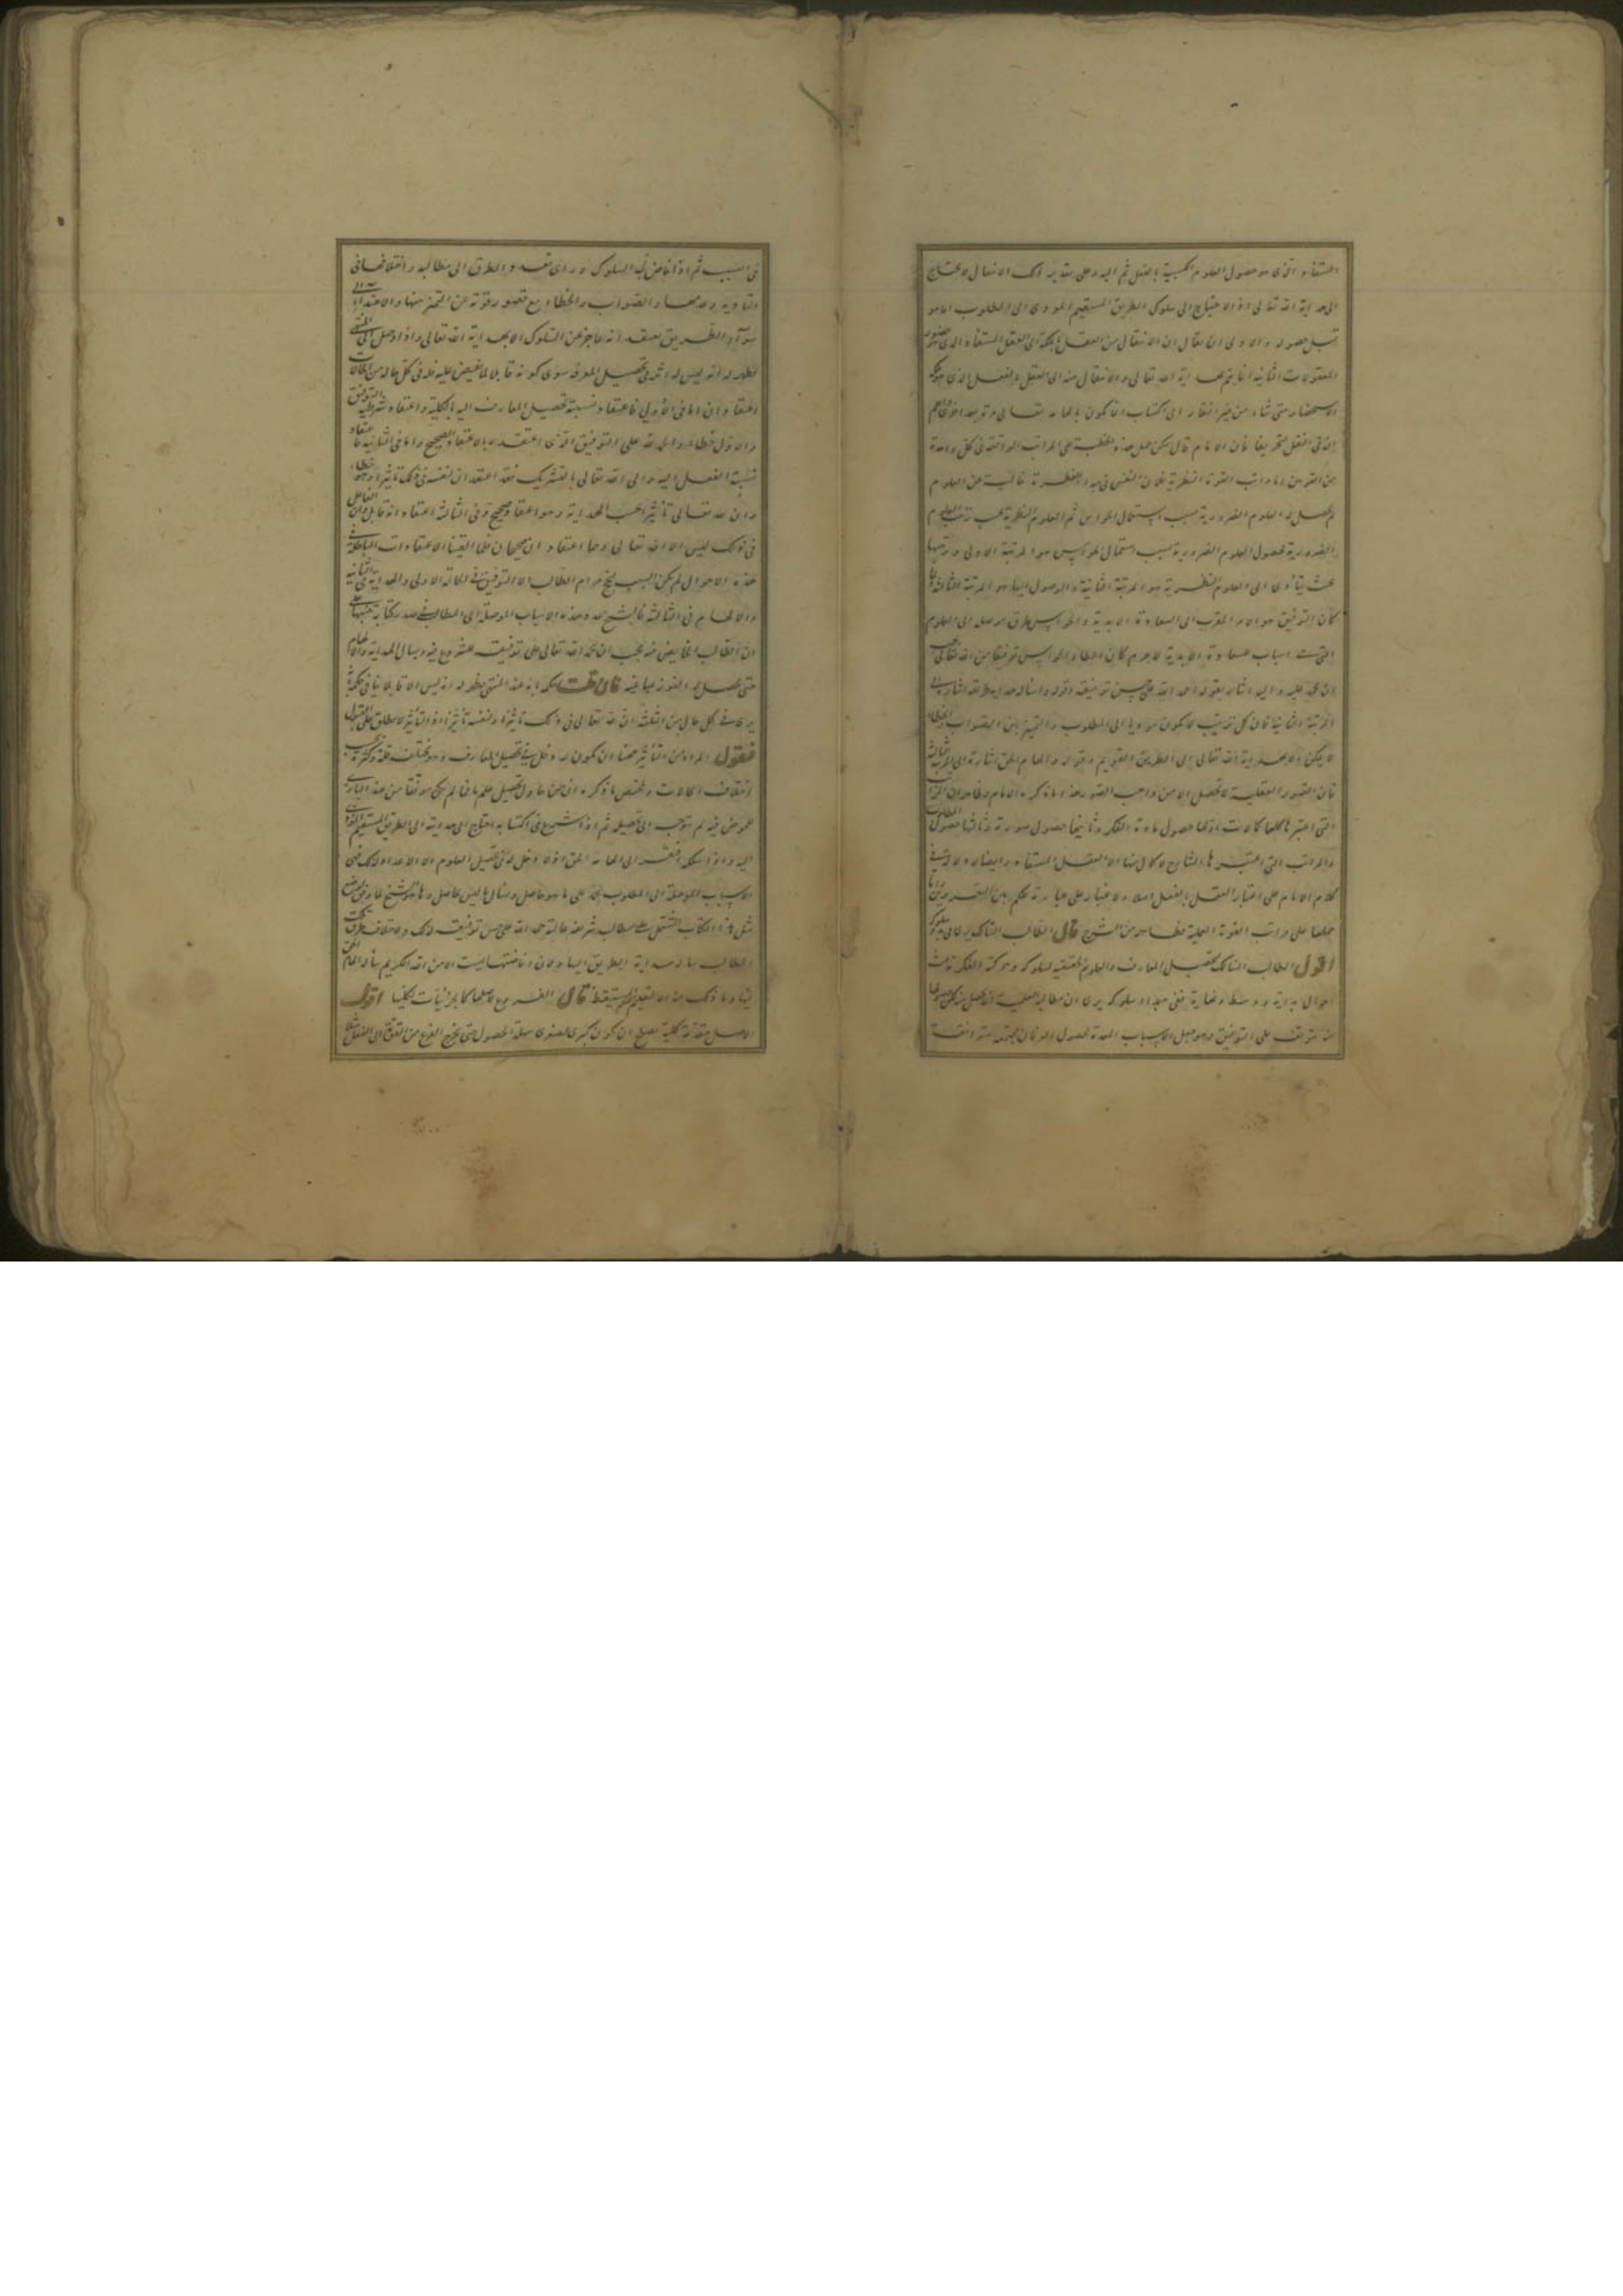 المستفاد الذى هو حصول العلوم المكتسبة بالفعل ثم اليه وعلى تقدير ذلك الانتقال لا يحتاج
الى هداية الله تعالى اذ الاحتياج الى سلوك الطريق المستقيم المودى الى المطلوب انما هو
قبل حصوله والاولى ان يقال ان الانتقال من العقل بالملكة الى العقل المستفاد الذى هو حضور
المعقولات الثانية انما يتم بهداية الله تعالى والانتقال منه الى العقل بالفعل الذى هو ملكة
الاستحضار متى شاء من غير افتقار الى اكتساب انما يكون بالهامه تعالى
قال الامام يمكن حمل هذه الخطبة على المراتب الواقعة فى كل واحدة
من القوتين اما مراتب القوة النظرية فلان النفس فى مبدء الفطرة خالية عن العلوم
ثم يحصل له العلوم الضرورية بسبب استعمال الحواس ثم العلوم النظرية بحسب ترتيب العلوم
الضرورية فحصول العلوم الضرورية بسبب استعمال الحواس هو المرتبة الاولى وترتيبها
بحيث يتأدى الى العلوم النظرية هو المرتبة الثانية والوصول اليها هو المرتبة الثالثة ولما
كان التوفيق هو الامر المقرب الى السعادة الابدية والحواس طرق موصلة الى العلوم
التى هى اسباب السعادة الابدية لا جرم كان اعطاء الحواس توفيقا من الله تعالى يجب
ان يحمد عليه واليه اشار بقوله احمد الله على حسن توفيقه وقوله واسأله هداية طريقه اشارة الى
المرتبة الثانية فان كل ترتيب لا يكون موديا الى المطلوب والتمييز بين الصواب والخطاء
لا يمكن الا بهداية الله تعالى الى الطريق القويم وقوله والهام الحق اشارة الى المرتبة الثالثة
فان الصور العقلية لا تحصل الا من واهب الصور هذا ما ذكره الامام
التى اعتبرها كلها كمالات اولها حصول مادة الفكر وثانيها حصول صورته وثالثها حصول المطلوب
والمراتب التى اعتبرها الشارح لا كمال منها الا العقل المستفاد وايضا لا دلالة فى
كلام الامام على اعتبار العقل بالفعل اصلا
حملها على مراتب القوة العملية فظاهر من الشرح قال الطالب السالك يرى فى بدء سلوكه
اقول الطالب السالك لتحصيل المعارف والعلوم الحقيقية لسلوكه وحركته الفكرية ثلث
احوال بداية ووسط ونهاية ففى مبداء سلوكه يرى ان مطالبه العلمية
متوقف على التوفيق وهو جعل الاسباب المعدة لحصول العرفان مجتمعة متوافقة
فى السبب ثم اذا خاض فى السلوك ورأى تعدد الطرق الى مطالبه واختلافها فى
التأدية وعدمها والصواب والخطاء مع قصور قوته عن التميز بينها والاهتداء الى
سواء الطريق يعتقد انه عاجز عن السلوك الا بهداية الله تعالى واذا وصل الى المنتهى
ظهر له انه ليس له اثر فى تحصيل المعرفة سوى كونه قابلا لما يفيض عليه فله فى كل حالة من الحالات
اعتقادان اما فى الاولى فاعتقاد نسبة تحصيل المعارف اليه بالكلية واعتقاد شرطية التوفيق
والاول خطاء والحمد لله على التوفيق الذى اعتقده بالاعتقاد الصحيح واما فى الثانية فاعتقاد
نسبة الفعل اليه والى الله تعالى بالتشريك فقد اعتقد ان لنفسه فى ذلك تأثيرا وهو خطاء
وان لله تعالى تأثيرا بحسب الهداية وهو اعتقاد صحيح وفى الثالثة اعتقاد انه قابل وان الفاعل
فى ذلك ليس الا الله تعالى وهما اعتقادان صحيحان فلما القينا الاعتقادات الباطلة فى
هذه الاحوال لم يكن السبب لنجح مرام الطالب الا التوفيق فى الحالة الاولى والهداية فى الثانية
والالهام فى الثالثة فالشيخ عدد هذه الاسباب الموصلة الى المطالب فى صدر كتابه منبها على
ان الطالب الخايض فيه يجب ان يحمد الله تعالى على توفيقه للشروع فيه ويسال الهداية والالهام
حتى يحصل له الفوز بمباغيه فان قلت حكمه بانه عند المنتهى يظهر له انه ليس الا قابلا ينافى حكمه بانه
يرى فى كل حال من الثلث ان لله تعالى فى ذلك تأثيرا ولنفسه تأثيرا اذ التأثير لا يطلق على القبول
فنقول المراد من التأثير ههنا ان يكون له دخل فى تحصيل المعارف وهو يختلف قلة وكثرة بحسب
اختلاف الحالات وملخص ما ذكره ان من حاول تحصيل علم ما فما لم يكن موفقا من عند البارى
للخوض فيه لم يتوجه الى تحصيله ثم اذا شرع فى اكتسابه احتاج الى هدايته الى الطريق المستقيم المودى
اليه واذا سلكه افتقر الى الهامه الحق اذ لا دخل له فى تحصيل العلوم الا الاعداد فتلك هى
الاسباب الموصلة الى المطلوب يحمد على ما هو حاصل ويسال ما ليس بحاصل والشيخ لما وفق لوضع
مثل هذا الكتاب المشتمل على مطالب شريفة عالية حمد الله على حسن توفيقه لذلك
الطالب سأله هداية الطريق اليها ولما ان افاضتها ليست الا من الله الكريم سأله الهام الحق
فيها وما ذلك منه الا لتعليم المستيقظ قال الفروع لاصلها كالجزئيات لكلها اقول
الاصل مقدمة كلية تصلح ان تكون كبرى لصغرى سهلة الحصول حتى يخرج الفرع من القوة الى الفعل